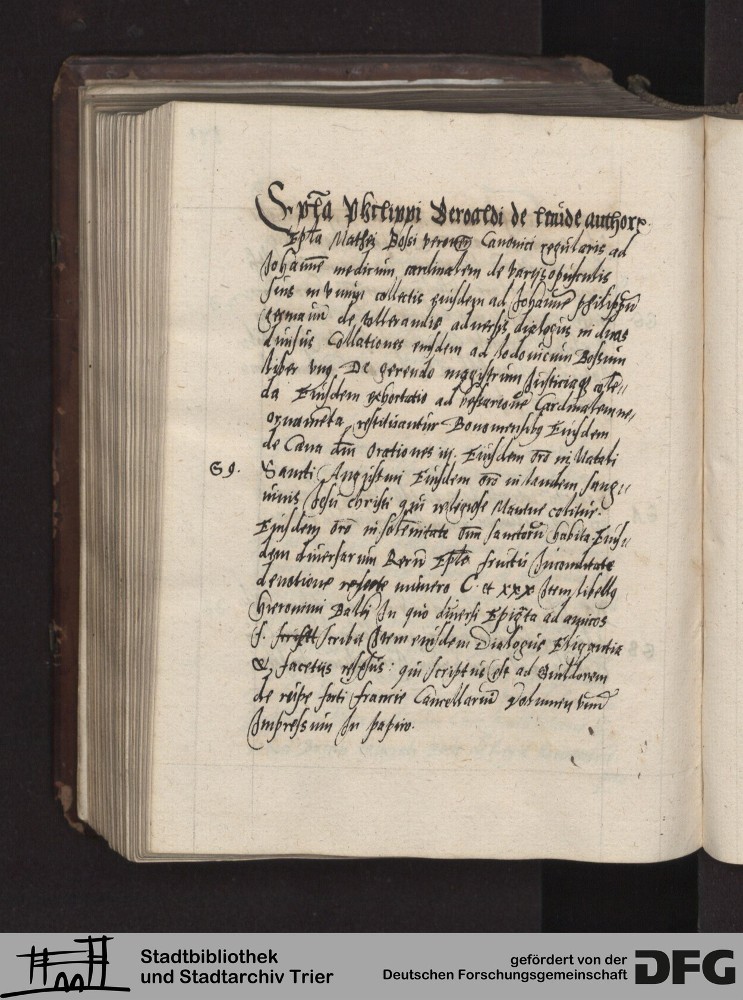 Ep̄la Philippi Beroaldi de laude authorꝝ.
Ep̄la Mathei Bossi veronēn Canonici regularis ad
Johannē medicum cardinalem de varijs opusculis
suis in vnum collectis eiusdem ad Johannē philippū
germanū de tollerandis aduersis dialogus in duas
diuisus Collationes eiusdem ad lodouicum Bossum
liber vnꝯ De gerendo magistratu Justiciaqꝫ cole„
da Eiusdem exhortatio ad cardinalem ne„
ornamēta restituantur Bononiensibꝯ Eiusdem
de Cena dn̄i Orationes iij. Eiusdem orō in Natali
S 9.
Sancti Augustini Eiusdem orō in laudem sang„
uinis Jhesu christi qui religiose Mantue colitur.
Eiusdem orō in solēnitate om̄ sanctorū habita. Eius„
dem diuersarum Rerū Ep̄le fructu Jucunditate
deuotione referte numero C. et xxx Item libellꝯ
Hieronimi Balbi In quo diuersi Epigr̄ta ad amicos
s. scribit Item eiusdem Dialogus Eligantia
& facetijs refersus: qui scriptus est ad Guidonem
de rupe forti francie Cancellariū Volumen vnū
Impressum In papiro.
Stadtbibliothek
und Stadtarchiv Trier
gefördert von der
Deutschen Forschungsgemeinschaft
DFG